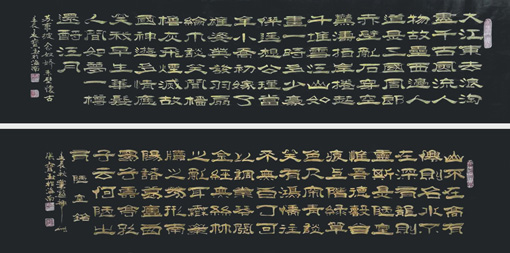 大江東去浪淘
盡千古風流人
物故壘西邊人
道是三國周郎
赤壁亂石穿空
驚濤拍岸捲起
千堆雪江山如
畫一時多少豪
傑遙想公瑾當
年小喬初嫁了
雄姿英發羽扇
綸巾談笑間檣
櫓灰飛煙滅故
國神遊多情應
笑我早生華髮
人間如夢一樽
還酹江月
蘇東坡念奴嬌赤壁懷古
山不在高有
仙則名水不
在深有龍則
靈斯是陋室
惟吾德馨苔
痕上階綠草
色入簾青談
笑有鴻儒往
來無白丁可
以調素琴閱
金經無絲竹
之亂耳無案
牘之勞形南
陽諸葛廬西
蜀子雲亭孔
子云何陋之
有 陋室銘